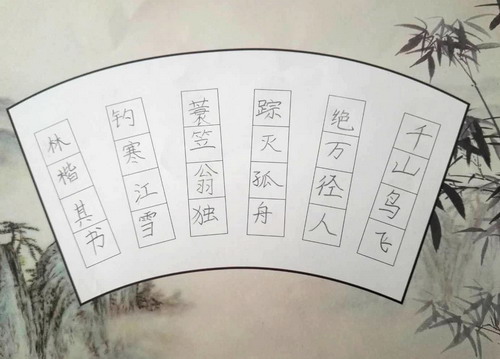 千山鸟飞
绝万径人
踪灭孤舟
蓑笠翁独
钓寒江雪
林楷其书